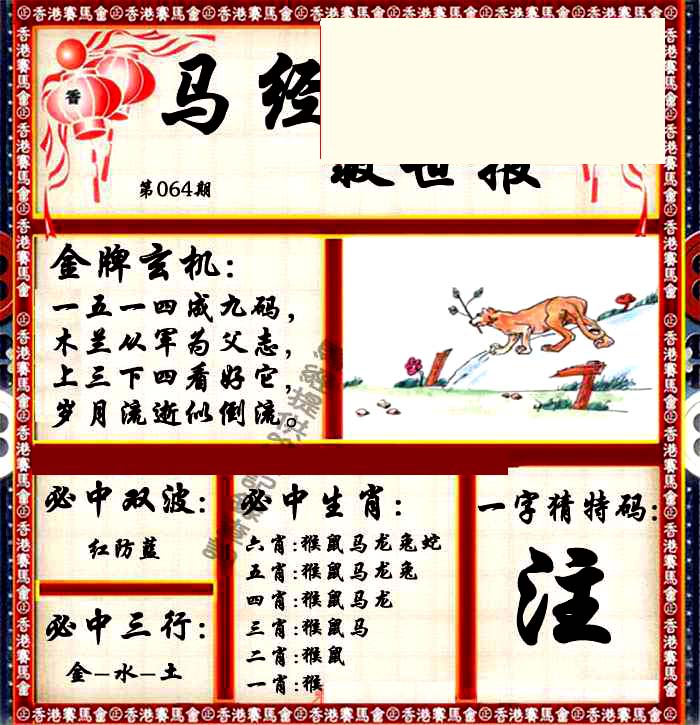 香港賽馬會
香
马经
救世报
第064期
金牌玄机:
一五一四成九码，
木兰从军为父志，
上三下四看好它，
岁月流逝似倒流。
必中双波:
红防蓝
必中三行:
金-水-土
必中生肖:
六肖:猴鼠马龙兔蛇
五肖:猴鼠马龙兔
四肖:猴鼠马龙
三肖:猴鼠马
二肖:猴鼠
一肖:猴
一字猜特码:
注